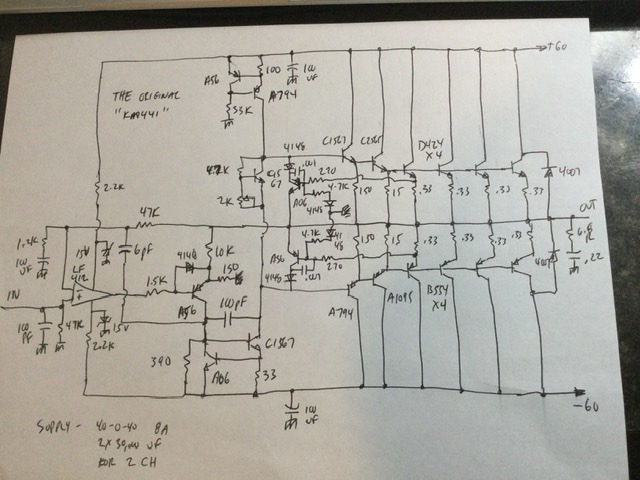 +60
A56
100
100 UF
THE ORIGINAL
"KA9441"
A794
33K
C1567
C2565
D424
X4
4148
.001
270
4.7K
150
15
.33
.33
.33
.33
4007
2K
A06
4.7K
4148
2.2K
47K
OUT
1.2K
100
UF
15V
6pF
4148
10K
150
4.7K
41
48
150
15
.33
.33
.33
.33
6.8
.22
LF
412
A56
270
4148
IN
1.5K
A56
100pF
A794
A1095
B554
X4
100
PF
47K
15V
2.2K
C1567
390
A06
33
100
UF
-60
SUPPLY - 40-0-40 8A
2X 30,000 UF
FOR 2 CH